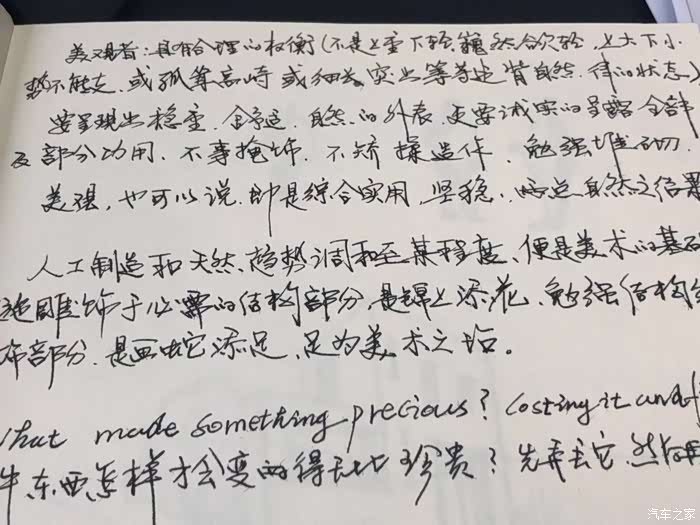 美观者：具有合理的权衡（不是上重下轻巍然欲倾，上大下小
势不能支，或孤耸高峙或细长突出等等违背自然律的状态）
要呈现出稳重，舒适，自然的外表，更要诚实的呈露全部
及部分功用，不事掩饰，不矫揉造作，勉强堆砌，
美观，也可以说，即是综合实用，坚稳，两点自然之结果
人工制造和天然趋势调和至某程度，便是美术的基础
施雕饰于必需的结构部分，是锦上添花，勉强结构
部分，是画蛇添足，足为美术之玷。
what made something precious? Costing it and
件东西怎样才会变的得无比珍贵？先弄丢它，然后再
汽车之家